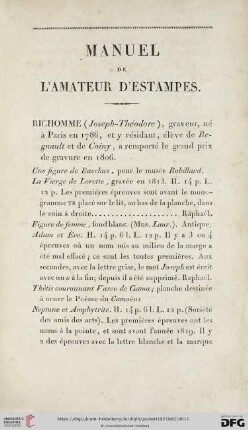 MANUEL
DE
L'AMATEUR D'ESTAMPES.
RICHOMME (Joseph-Théodore), graveur, né
à Paris en 1786, et y résidant, élève de Re-
gnault et de Coiny, a remporté le grand prix
de gravure en 1806.
Une figure de Bacchus, pour le musée Robillard.
La Vierge de Lorette, gravée en 1813. H. 14 p. L.
12 p. Les premières épreuves sont avant le mono-
gramme placé sur le lit, au bas de la planche, dans
le coin à droite. Raphaël.
Figure de femme, fond blanc. (Mus. Laur.). Antique.
Adam et Eve. H. 14 p. 6 l. L. 12 p. Il y a 3 ou 4
épreuves où un nom mis au milieu de la marge a
été mal effacé; ce sont les toutes premières. Aux
secondes, avec la lettre grise, le mot Joseph est écrit
avec un e à la fin; depuis il a été supprimé. Raphaël.
Thétis couronnant Vasco de Gama; planche destinée
à orner le Poème du Camoëns
Neptune et Amphytrite. H. 14 p. 6 l. L. 12 p. (Société
des amis des arts). Les premières épreuves ont les
noms à la pointe, et sont avant l'année 1819. Il y
a des épreuves avec la lettre blanche et la marque